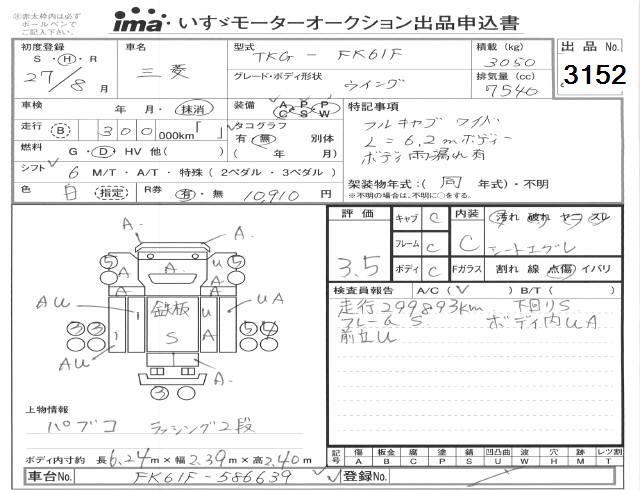 ※赤太枠内は必ず
ボールペンで
ご記入下さい。
ima いすゞモーターオークション出品申込書
初度登録
S・H・R
27/8月
車名
三菱
型式
TKG - FK61F
グレード・ボディ形状
ウイング
積載 (kg)
3050
排気量 (cc)
7540
出品 No.
3152
車検
年 月・抹消
装備
A P P
C S W
走行 B 300 000km「 」
タコグラフ
有・無 別体
( 年 月)
燃料
G・D・HV 他( )
シフト 6 M/T・A/T・特殊 (2ペダル・3ペダル)
色 白 指定 R券 有・無 10,910 円
特記事項
フルキャブ ワイド
L=6.2mボディー
ボディ雨漏れ有
架装物年式:( 同 年式)・不明
※不明の場合は、不明に○をする。
評価
3.5
キャブ C
フレーム C
ボディ C
内装 C
汚れ 破れ ヤニ スレ
シートエグレ
Fガラス 割れ 線 点傷 イパリ
検査員報告 A/C ( V ) B/T ( )
走行299893km 下回りS
フレームS ボディ内UA
前立U
A
A
A
A
A
5
5
AU
UA
鉄板
S
3 3
5 4
AU
A
3
A
上物情報
パブコ ラッシング2段
ボディ内寸約 長6.24m×幅2.39m×高2.40m
記号 傷 板金 腐 塗 錆 凹凸曲 波 穴 株 レツ割
A B C P S U W H M T
車台No. FK61F-586639
登録No.